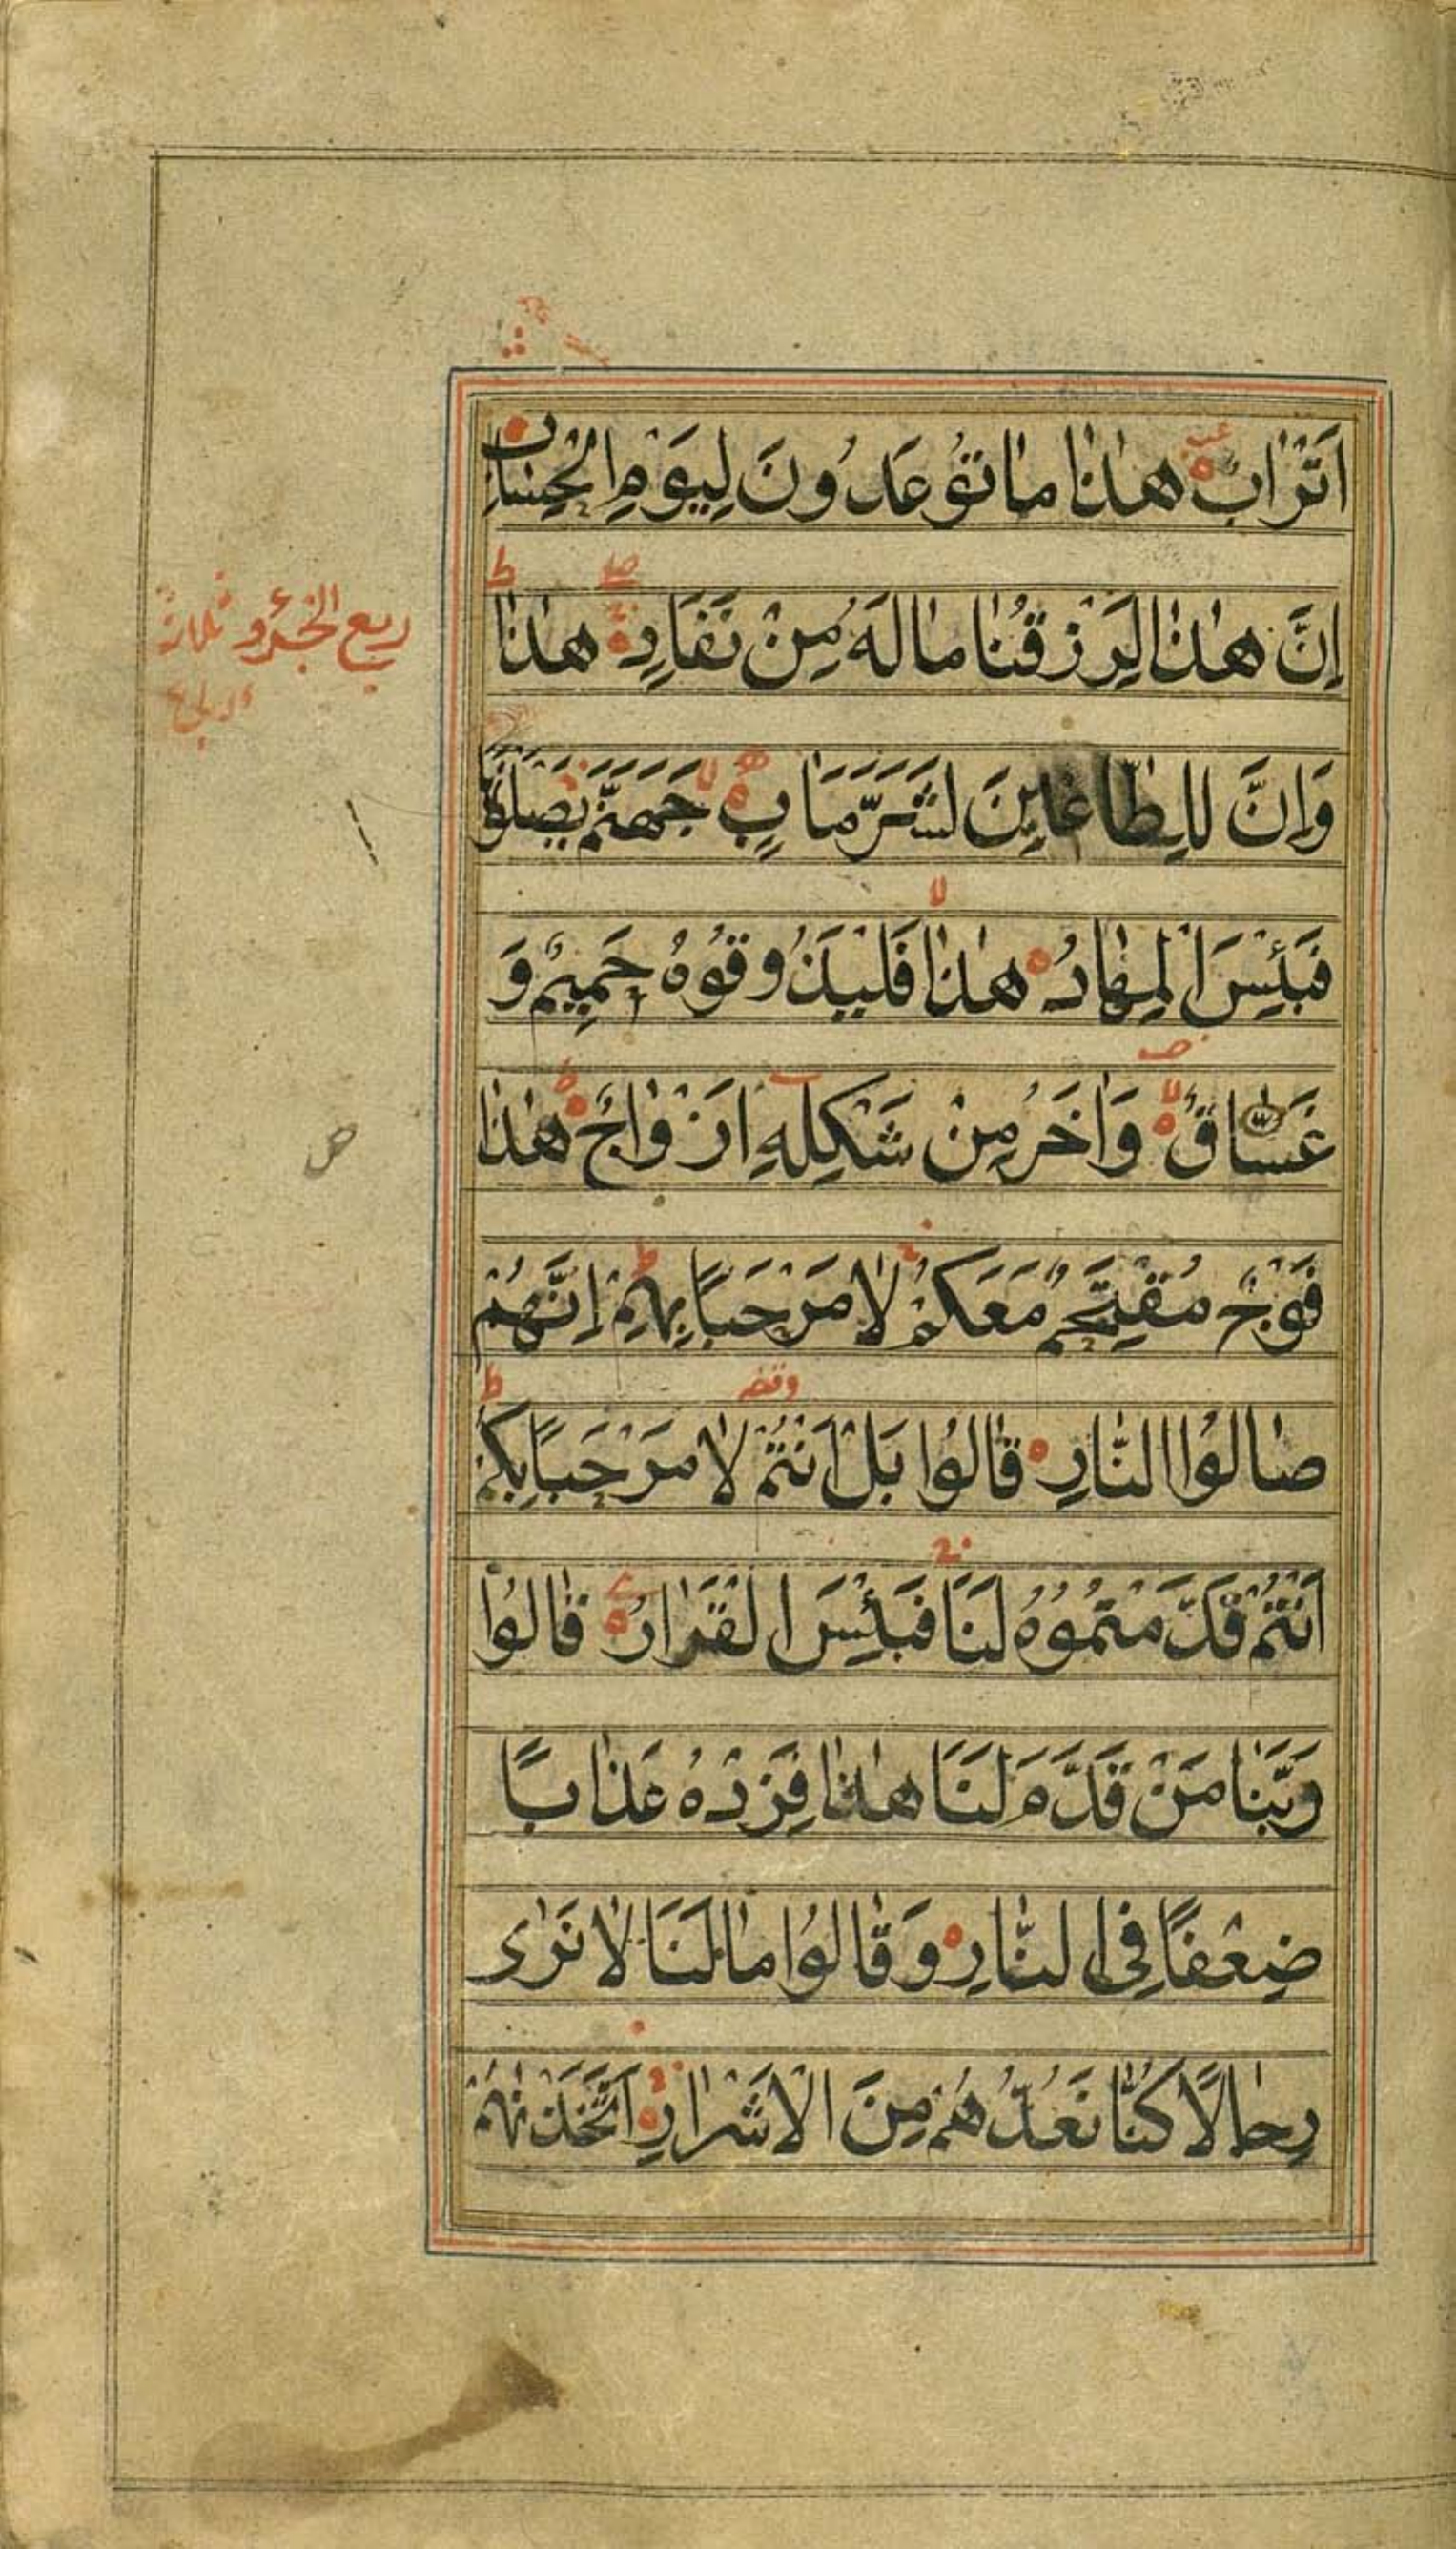 اَتْرَابٌ هٰذٰا مٰا تُوعَدُونَ لِيَوْمِ الْحِسٰابِ
اِنَّ هٰذٰا لَرِزْقُنٰا مٰا لَهُ مِنْ نَفَادٍ هٰذٰا
وَاِنَّ لِلطّٰاغِينَ لَشَرَّ مَاٰبٍ جَهَنَّمَ يَصْلَوْنَ
فَبِئْسَ الْمِهٰادُ هٰذٰا فَلْيَذُوقُوهُ حَمِيمٌ وَ
غَسّٰاقٌ وَاٰخَرُ مِنْ شَكْلِهِ اَزْوٰاجٌ هٰذٰا
فَوْجٌ مُقْتَحِمٌ مَعَكُمْ لٰا مَرْحَبًا بِهِمْ اِنَّهُمْ
صٰالُوا النّٰارِ قٰالُوا بَلْ اَنْتُمْ لٰا مَرْحَبًا بِكُمْ
اَنْتُمْ قَدَّمْتُمُوهُ لَنَا فَبِئْسَ الْقَرٰارُ قٰالُوا
رَبَّنٰا مَنْ قَدَّمَ لَنَا هٰذٰا فَزِدْهُ عَذٰابًا
ضِعْفًا فِى النّٰارِ وَقٰالُوا مٰا لَنَا لٰا نَرٰى
رِجٰالًا كُنّٰا نَعُدُّهُمْ مِنَ الْاَشْرٰارِ اَتَّخَذْنٰهُمْ
ربع الجزؤ وثلاثة
ص